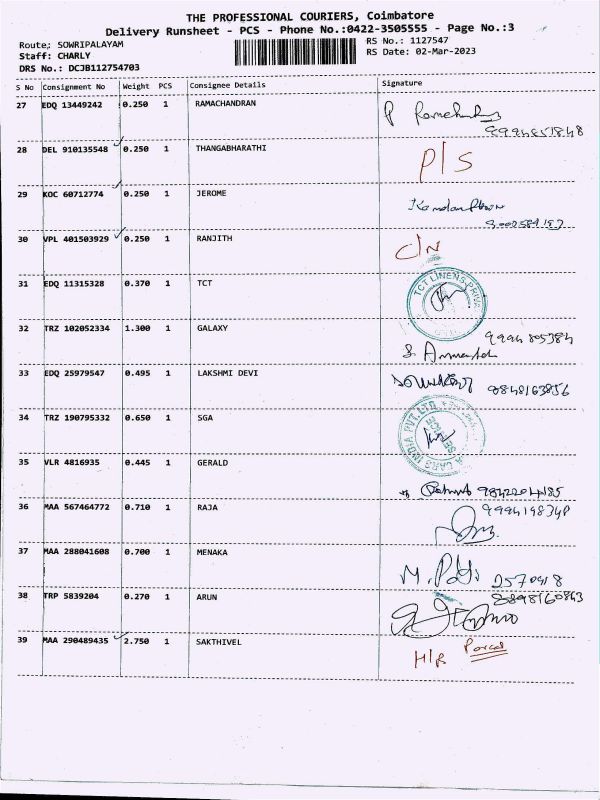 THE PROFESSIONAL COURIERS, Coimbatore
Delivery Runsheet - PCS - Phone No.:0422-3505555 - Page No.:3
Route; SOWRIPALAYAM
RS No.: 1127547
Staff: CHARLY
RS Date: 02-Mar-2023
DRS No.: DCJB112754703
S No Consignment No Weight PCS Consignee Details Signature
27 EDQ 13449242 0.250 1 RAMACHANDRAN
28 DEL 910135548 0.250 1 THANGABHARATHI P/S
29 KOC 60712774 0.250 1 JEROME
30 VPL 401503929 0.250 1 RANJITH C/N
31 EDQ 11315328 0.370 1 TCT TCT LINENS
32 TRZ 102052334 1.300 1 GALAXY 9994805384
33 EDQ 25979547 0.495 1 LAKSHMI DEVI 9848163856
34 TRZ 190795332 0.650 1 SGA CARS INDIA PVT.LTD
35 VLR 4816935 0.445 1 GERALD
36 MAA 567464772 0.710 1 RAJA
37 MAA 288041608 0.700 1 MENAKA
38 TRP 5839204 0.270 1 ARUN
39 MAA 290489435 2.750 1 SAKTHIVEL